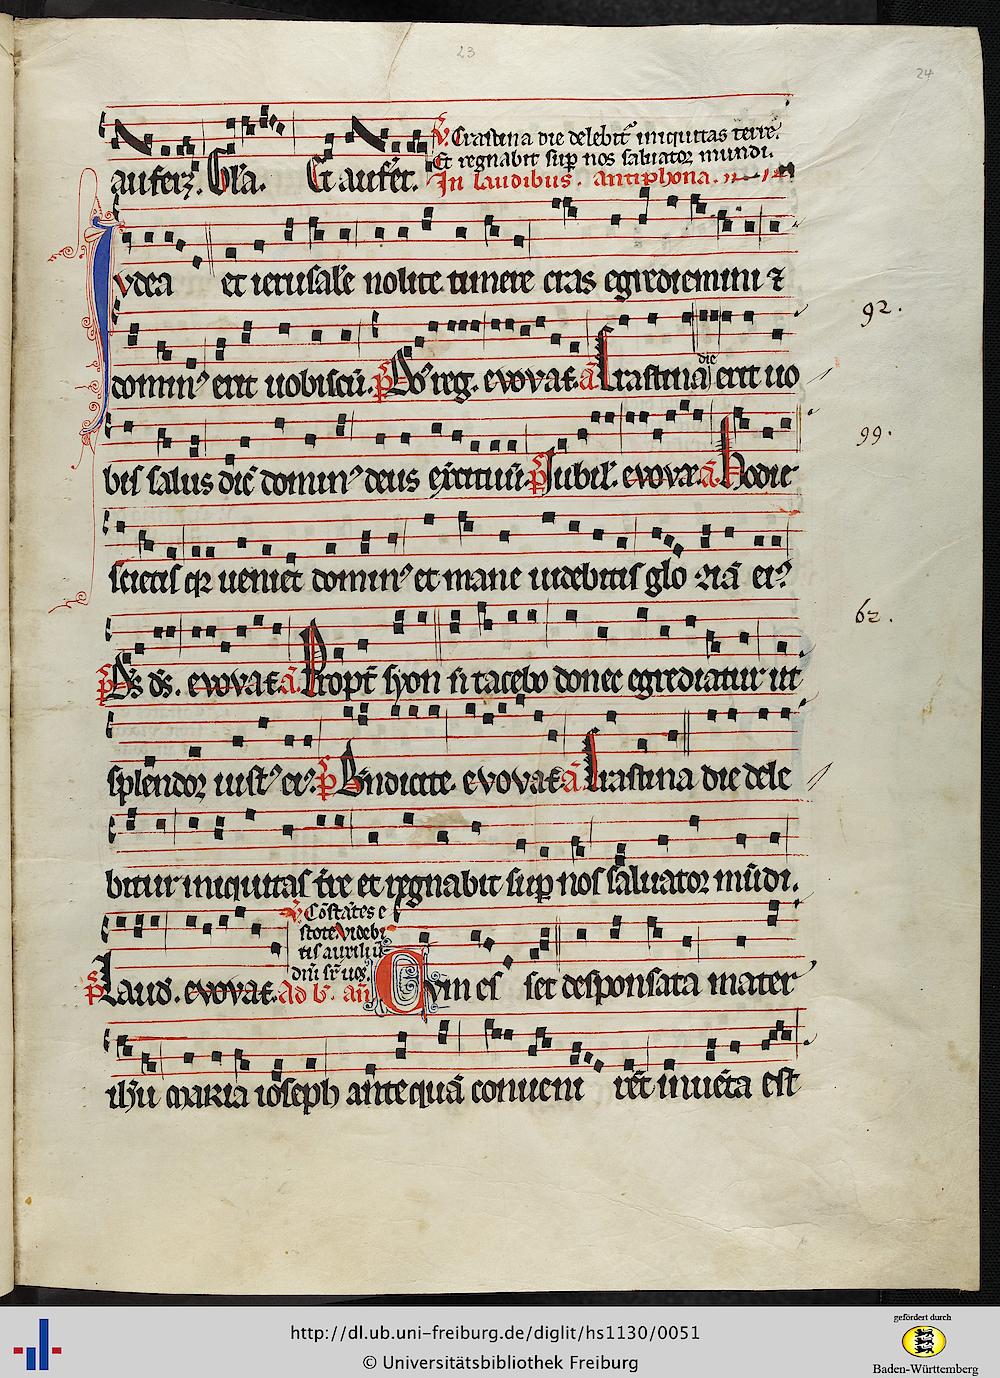 23
24
auferꝫ. Gl'a. Et aufer.
V. Crastina die delebit' iniquitas terre.
Et regnabit sup nos saluator mundi.
In laudibus. antiphona.
Iudea et ierusale nolite timere cras egrediemini ⁊
92.
domin' erit uobiscū. p̄s Dn̄s reg. evovae. ā Crastina die erit uo
bis salus dic̄ domin' deus exercituū. p̄s Iubil'. evovae. ā Hodie
99.
scietis qꝛ ueniet domin' et mane uidebitis glo riā ei'
62.
p̄s Ds ds. evovae. ā Propt' syon n̄ tacebo donec egrediatur ut
splendor iust' ei'. p̄s Bn̄dicite. evovae. ā Crastina die dele
bitur iniquitas t're et regnabit sup nos saluator mūdi.
V. Cōstātes e
stote videbi
tis auxiliū
dn̄i sr̄ uos.
p̄s Laud. evovae. Ad b'. an̄ Cvm es set desponsata mater
ihu maria ioseph anteq̄uā conueni rēt inuēta est
http://dl.ub.uni-freiburg.de/diglit/hs1130/0051
© Universitätsbibliothek Freiburg
gefördert durch
Baden-Württemberg